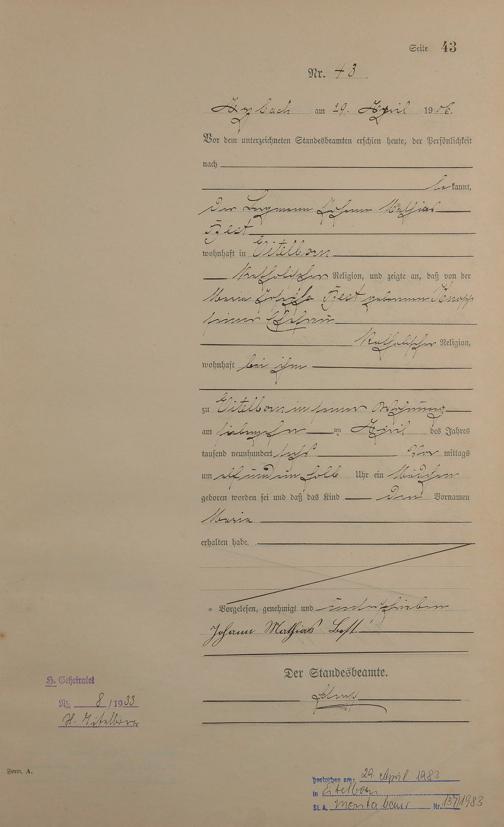 Seite 43
Nr. 43
Arzbach am 19. April 1906.
Vor dem unterzeichneten Standesbeamten erschien heute, der Persönlichkeit
nach
be kannt,
der Johann Mathias
Best
wohnhaft in Eitelborn
katholischer Religion, und zeigte an, daß von der
Maria Best geborenen Knopp
seiner Ehefrau
katholischer Religion,
wohnhaft bei ihm
zu Eitelborn in seiner Wohnung
am siebzehnten April des Jahres
tausend neunhundert sechs Vor mittags
um elf und ein halb Uhr ein Mädchen
geboren worden sei und daß das Kind den Vornamen
Maria
erhalten habe.
Vorgelesen, genehmigt und unterschrieben
Johann Mathias Best
Der Standesbeamte.
H. Heiratet
Nr. 8 / 1933
St. A. Eitelborn
Form. A.
Gestorben am: 29. April 1983
in Eitelborn
St. A. Montabaur Nr. 137/1983